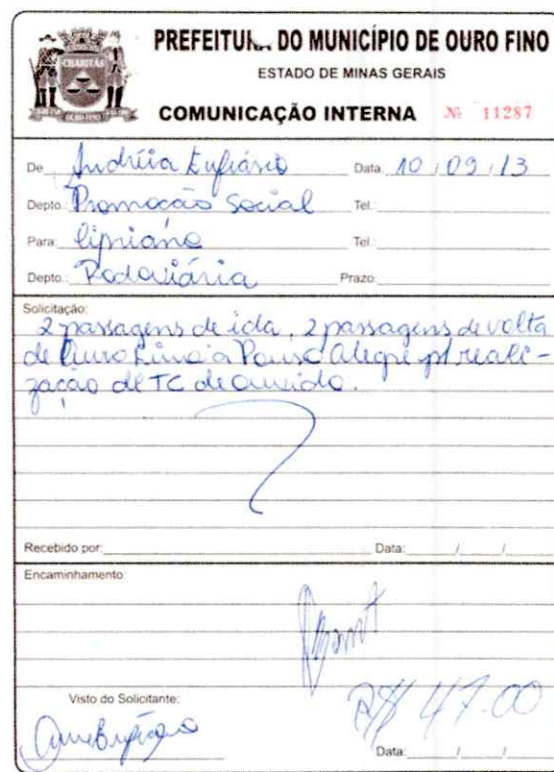 CHARITAS
OURO FINO
PREFEITURA DO MUNICÍPIO DE OURO FINO
ESTADO DE MINAS GERAIS
COMUNICAÇÃO INTERNA Nº 11287
De Andréia Eufrásio Data: 10/09/13
Depto.: Promoção Social Tel.:
Para: Cipriano Tel.:
Depto.: Rodoviária Prazo:
Solicitação:
2 passagens de ida, 2 passagens de volta
de Ouro Fino a Pouso Alegre p/ reali-
zação de TC de ouvido.
Recebido por: Data: / /
Encaminhamento:
Visto do Solicitante:
R$ 47.00
Data: / /